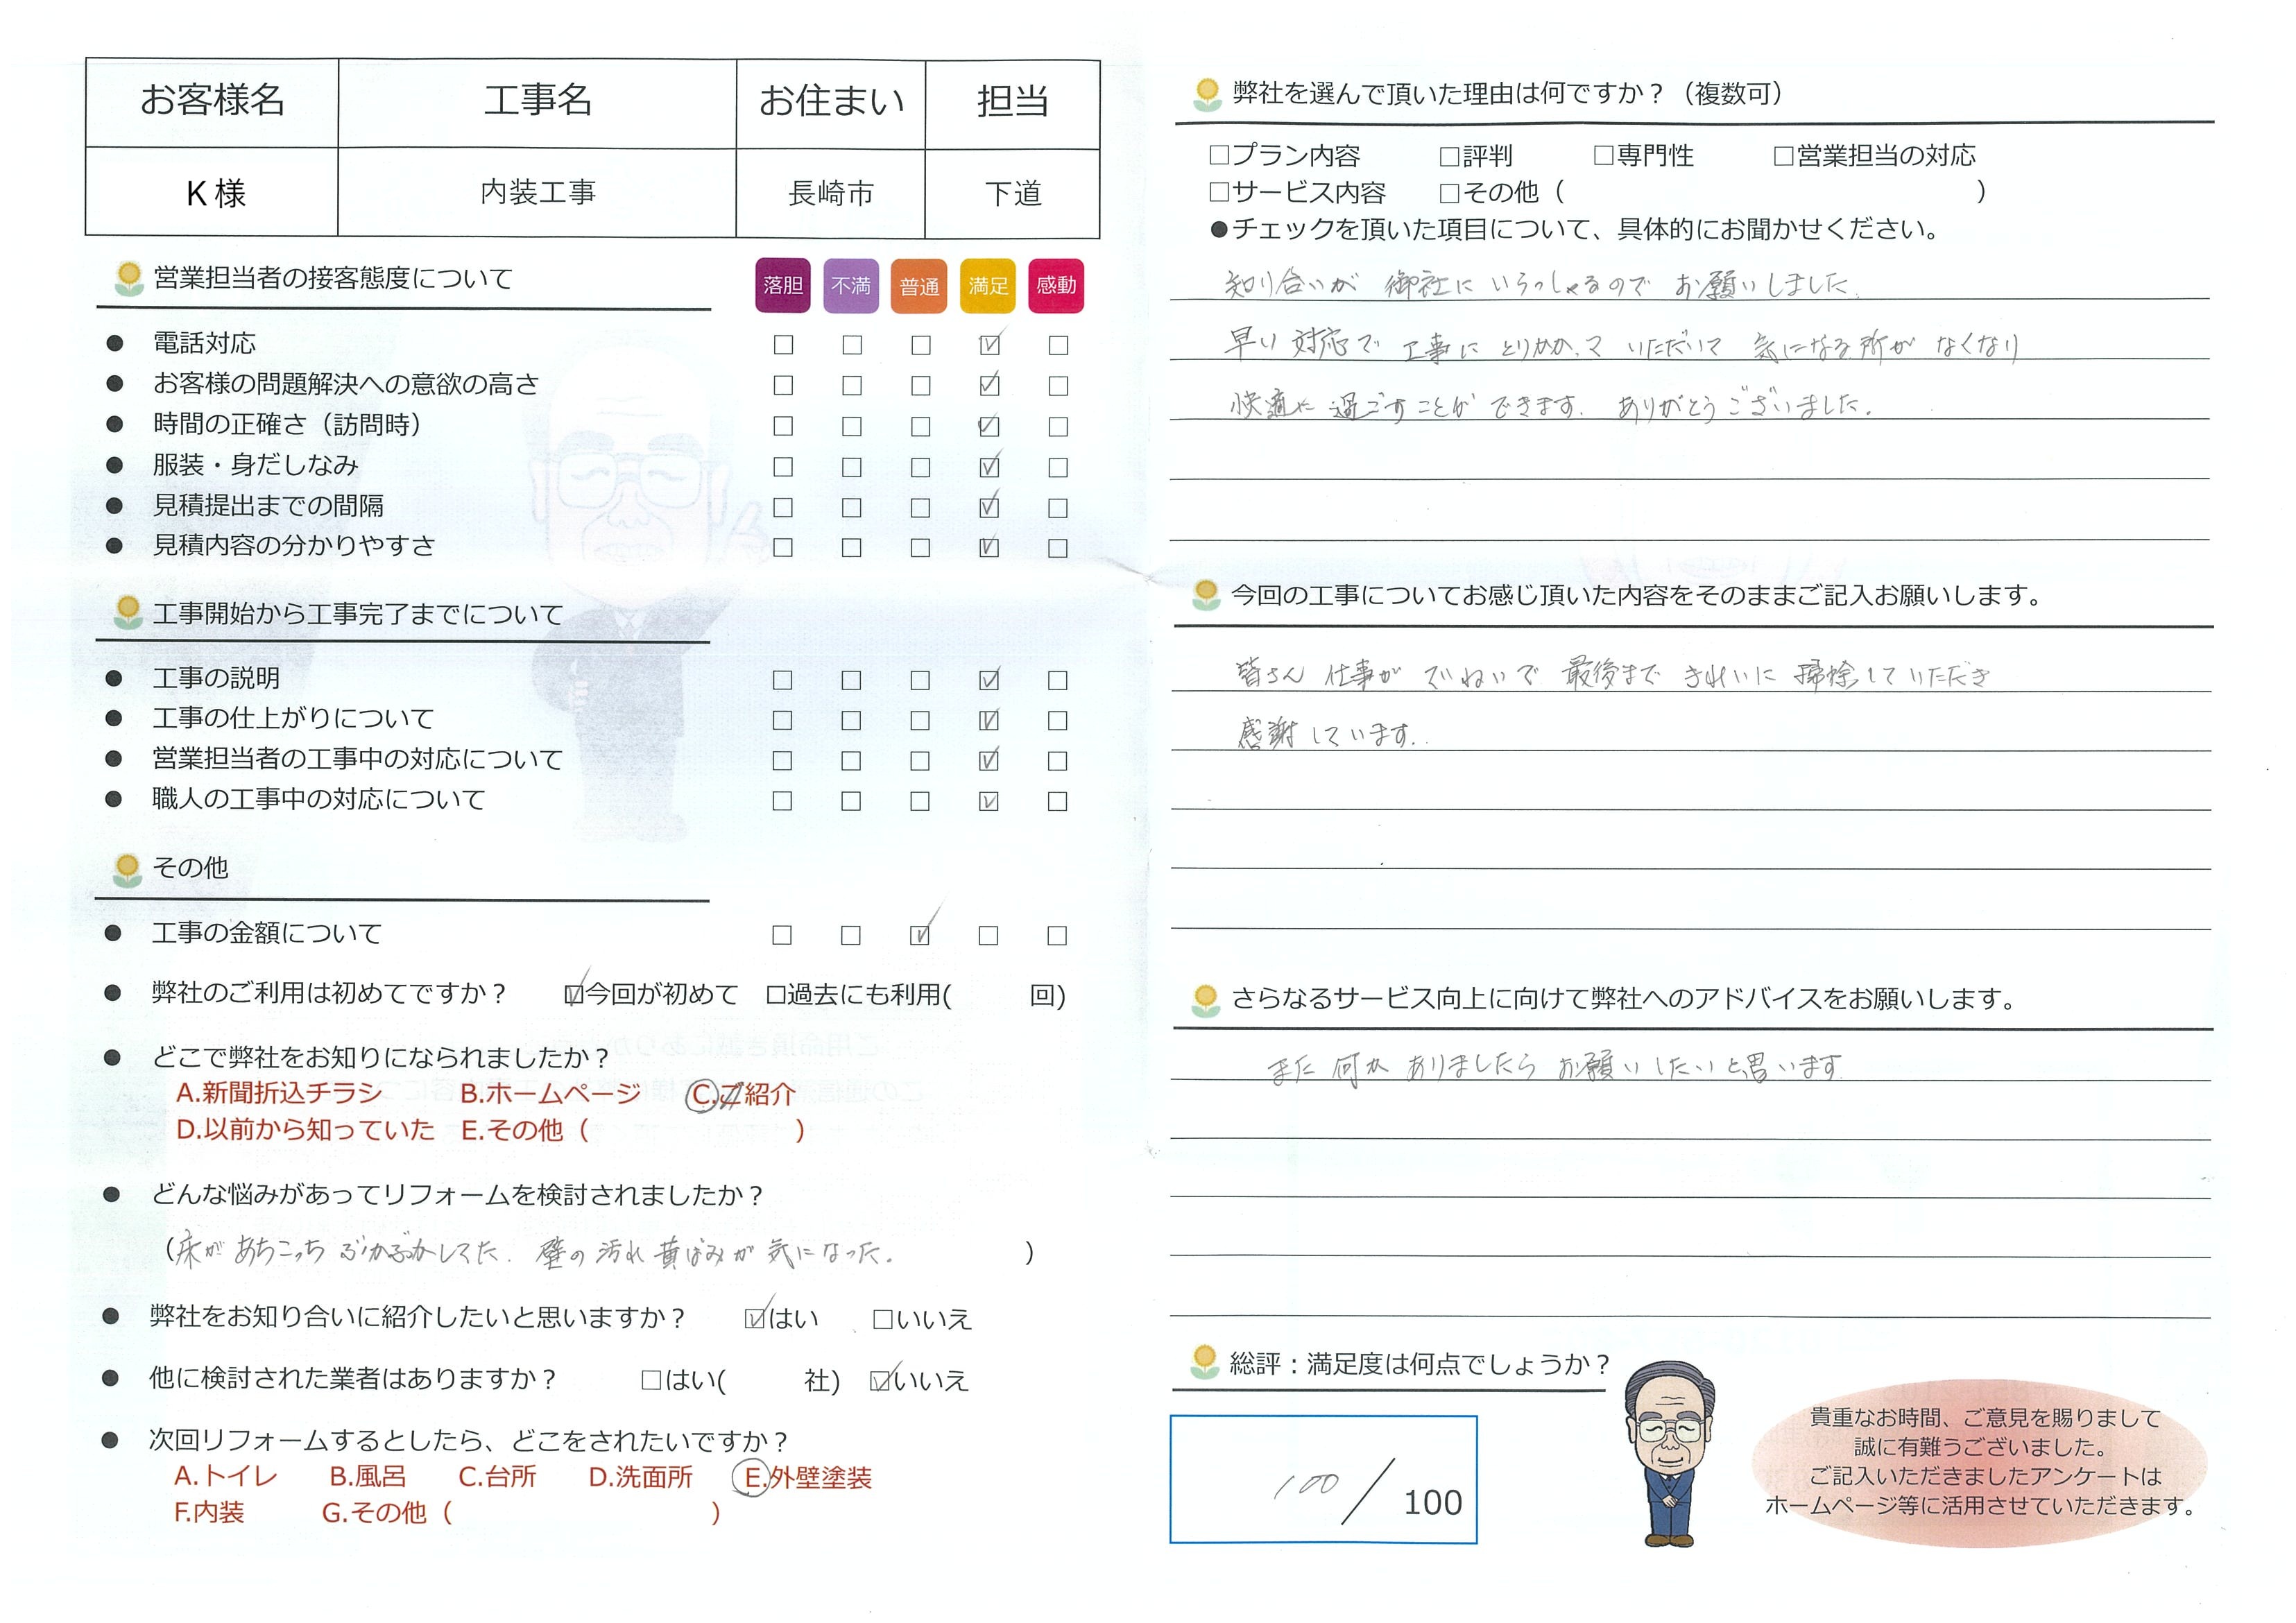 お客様名 工事名 お住まい 担当
K様 内装工事 長崎市 下道
営業担当者の接客態度について 落胆 不満 普通 満足 感動
● 電話対応 □ □ □ ☑ □
● お客様の問題解決への意欲の高さ □ □ □ ☑ □
● 時間の正確さ（訪問時） □ □ □ ☑ □
● 服装・身だしなみ □ □ □ ☑ □
● 見積提出までの間隔 □ □ □ ☑ □
● 見積内容の分かりやすさ □ □ □ ☑ □
工事開始から工事完了までについて
● 工事の説明 □ □ □ ☑ □
● 工事の仕上がりについて □ □ □ ☑ □
● 営業担当者の工事中の対応について □ □ □ ☑ □
● 職人の工事中の対応について □ □ □ ☑ □
その他
● 工事の金額について □ □ ☑ □ □
● 弊社のご利用は初めてですか？ ☑今回が初めて □過去にも利用( 回)
● どこで弊社をお知りになられましたか？
A.新聞折込チラシ B.ホームページ C.ご紹介
D.以前から知っていた E.その他（ ）
● どんな悩みがあってリフォームを検討されましたか？
(床があちこっち ぶかぶかしてた. 壁の汚れ 黄ばみが 気になった. )
● 弊社をお知り合いに紹介したいと思いますか？ ☑はい □いいえ
● 他に検討された業者はありますか？ □はい( 社) ☑いいえ
● 次回リフォームするとしたら、どこをされたいですか？
A.トイレ B.風呂 C.台所 D.洗面所 E.外壁塗装
F.内装 G.その他（ ）
弊社を選んで頂いた理由は何ですか？（複数可）
□プラン内容 □評判 □専門性 □営業担当の対応
□サービス内容 □その他（ ）
●チェックを頂いた項目について、具体的にお聞かせください。
知り合いが 御社に いらっしゃるので お願いしました.
早い対応で 工事に とりかかって いただいて 気になる所が なくなり
快適に 過ごすことが できます. ありがとうございました.
今回の工事についてお感じ頂いた内容をそのままご記入お願いします。
皆さん 仕事が ていねいで 最後まで きれいに 掃除していただき
感謝しています.
さらなるサービス向上に向けて弊社へのアドバイスをお願いします。
また 何か ありましたら お願いしたいと思います
総評：満足度は何点でしょうか？
100 / 100
貴重なお時間、ご意見を賜りまして
誠に有難うございました。
ご記入いただきましたアンケートは
ホームページ等に活用させていただきます。